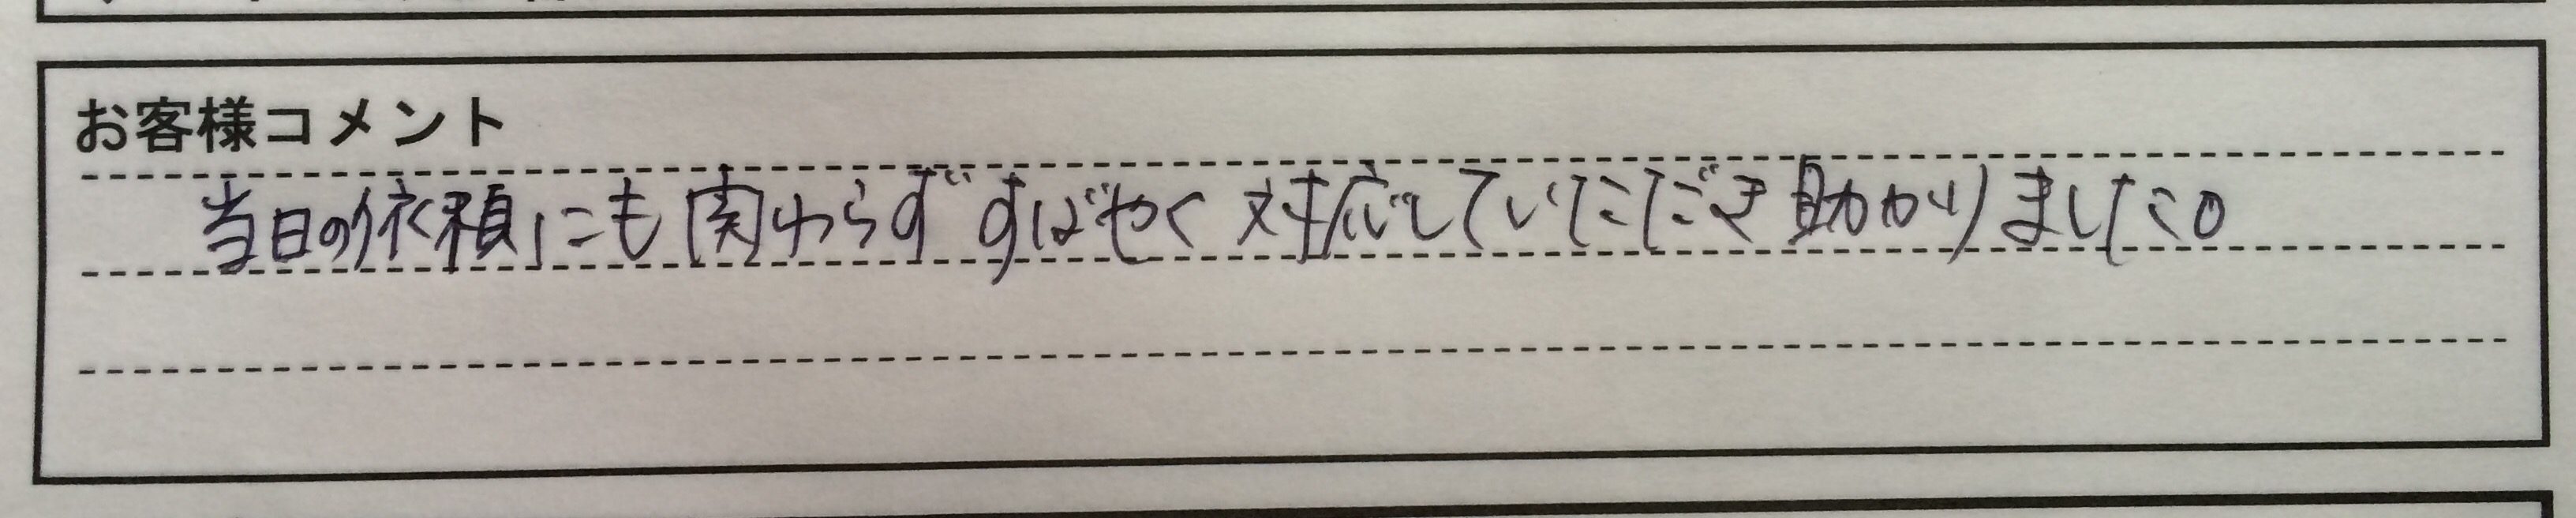 お客様コメント
当日の依頼にも関わらずすばやく対応していただき助かりました。